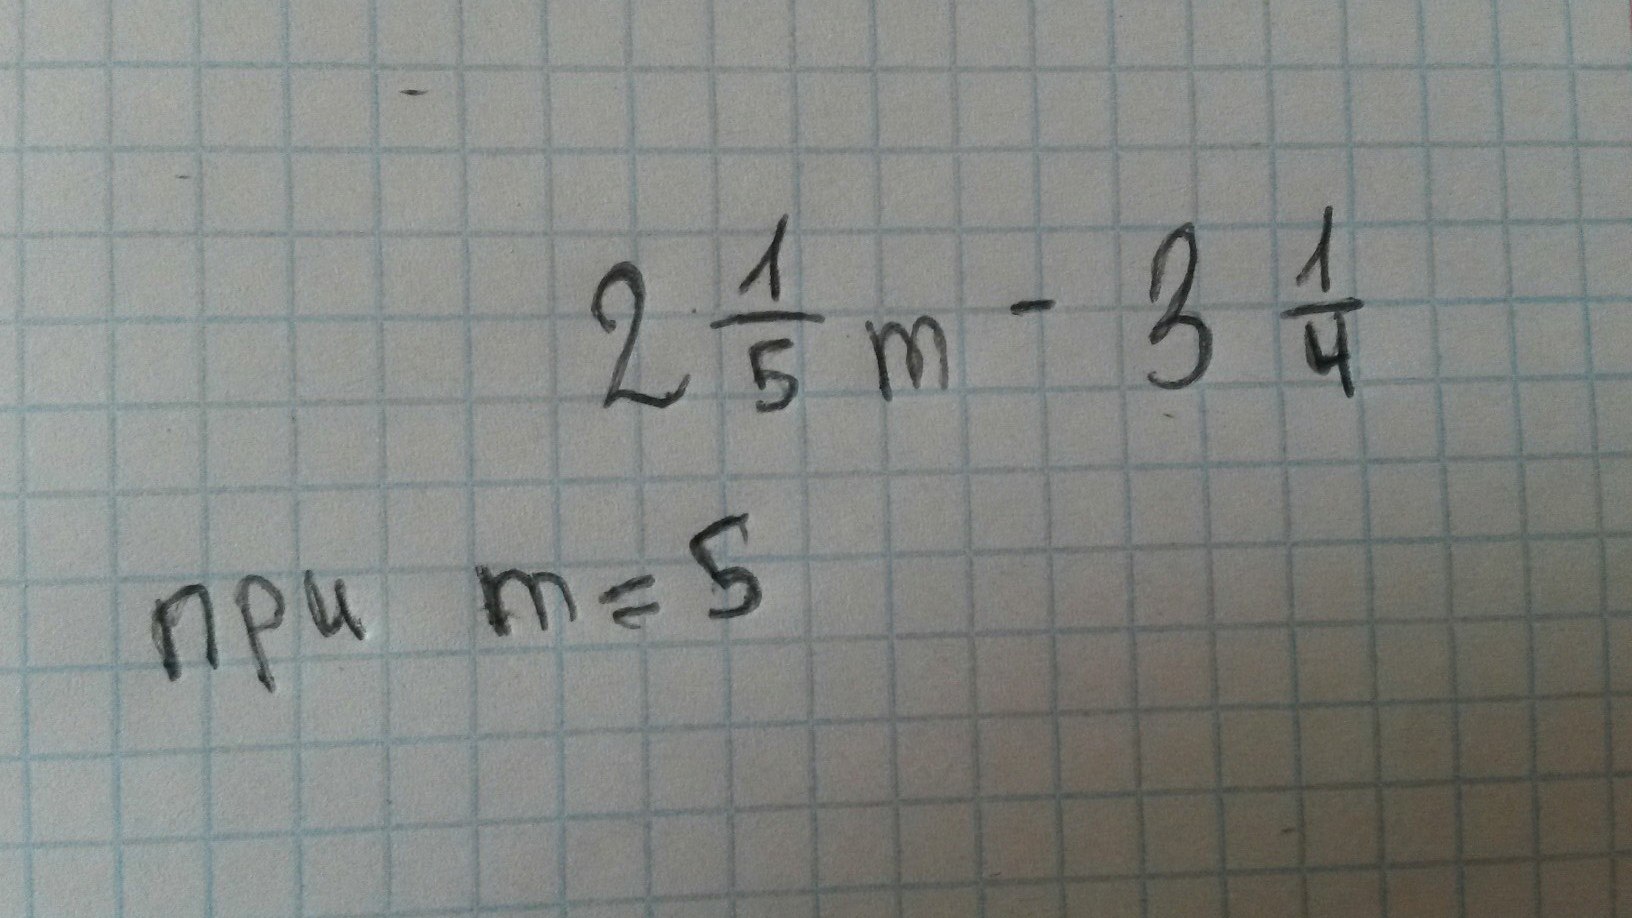 2 1/5 m - 3 1/4
при m = 5